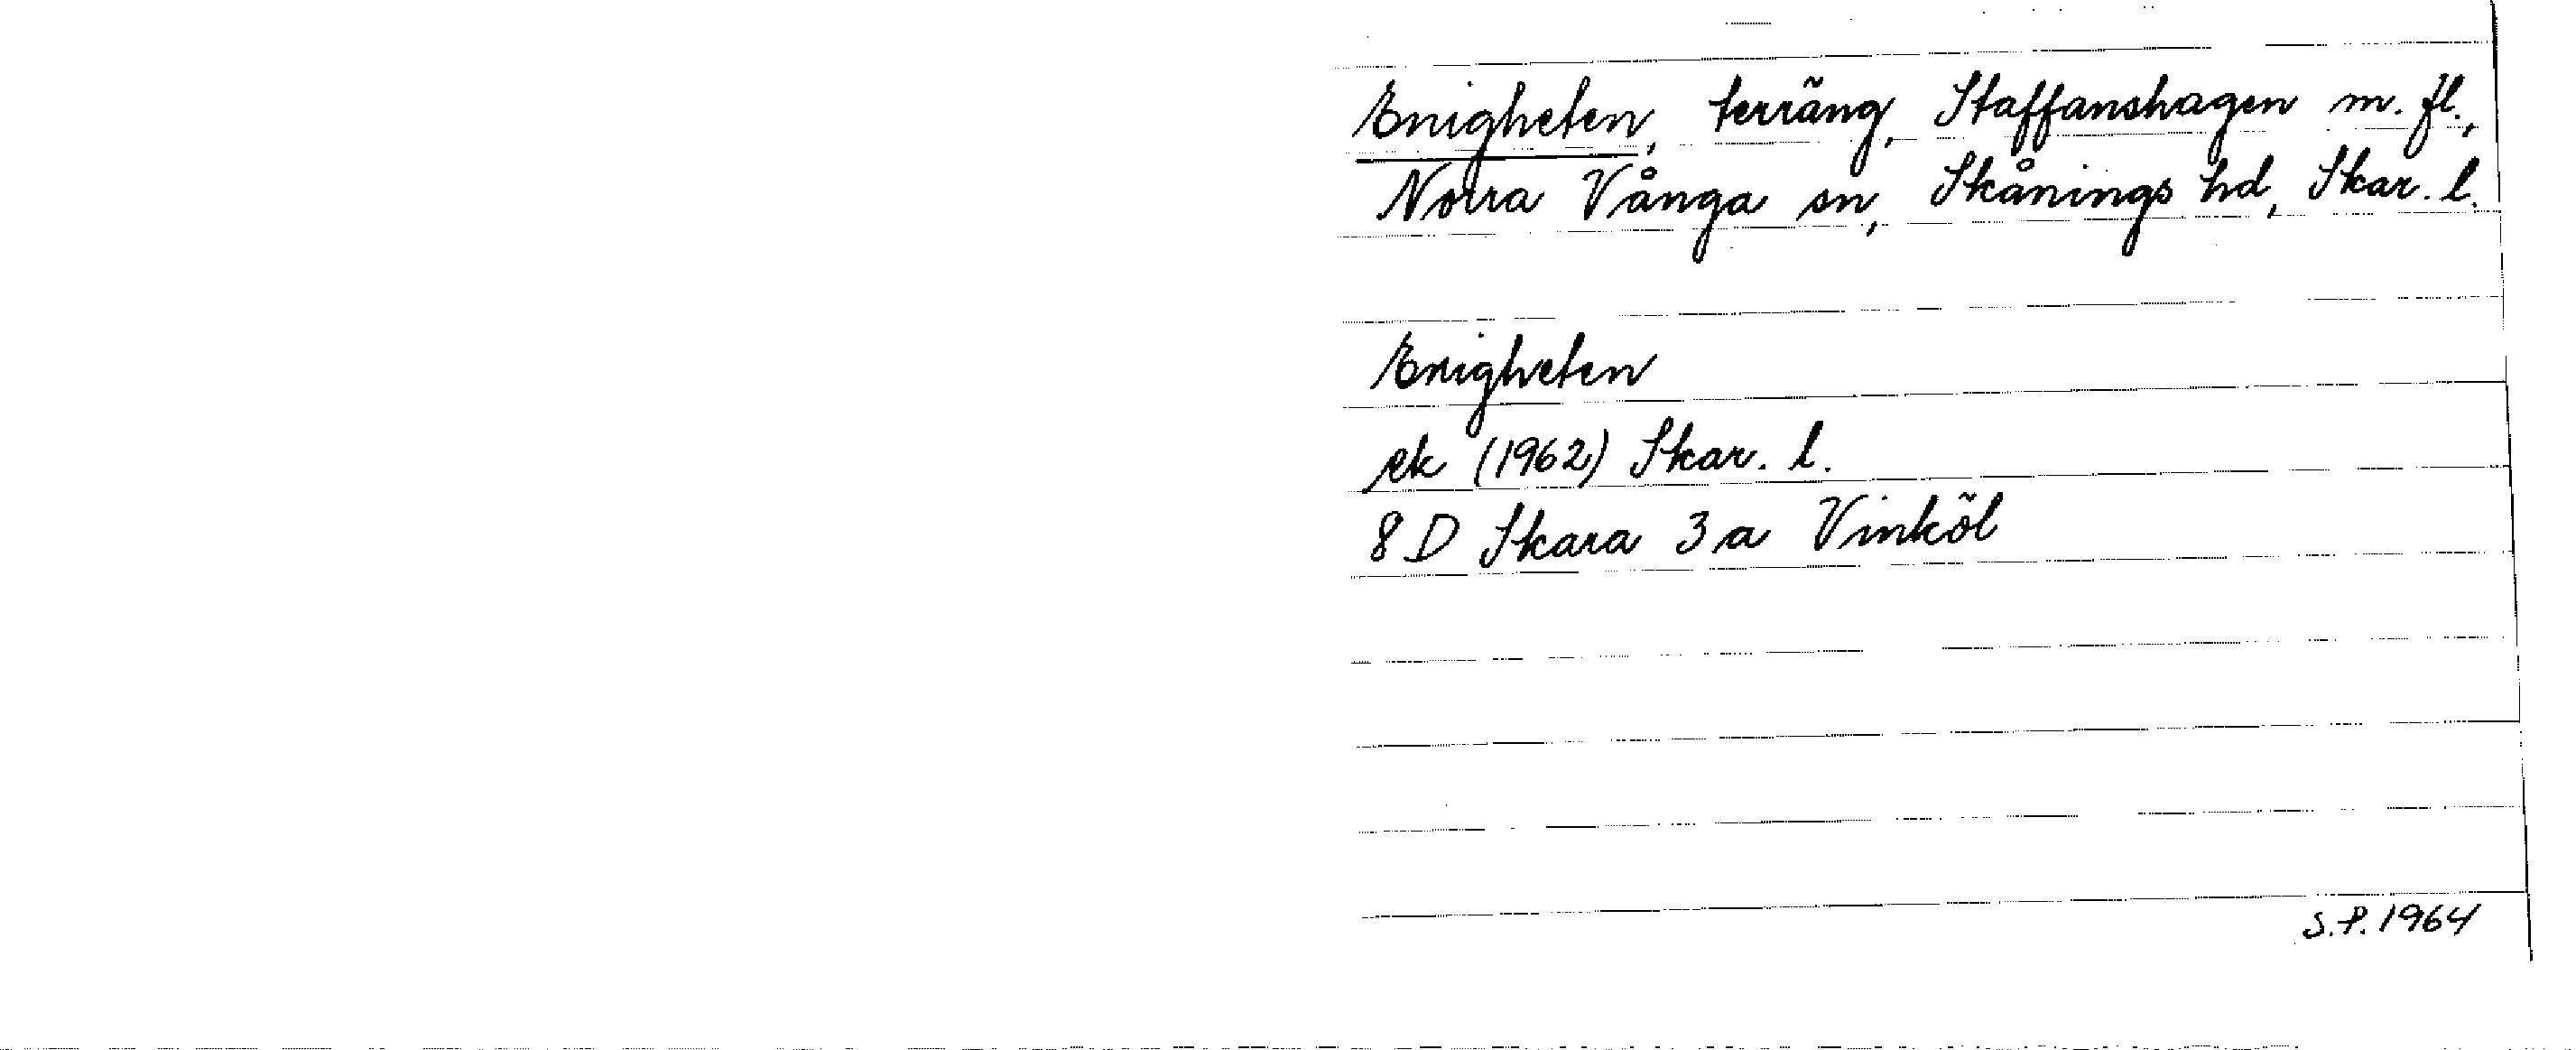 Enigheten, terräng, Staffanshagen m. fl.,
Norra Vånga sn, Skånings hd, Skar. l.
Enigheten
ek (1962) Skar. l.
8 D Skara 3 a Vinköl
S.P. 1964